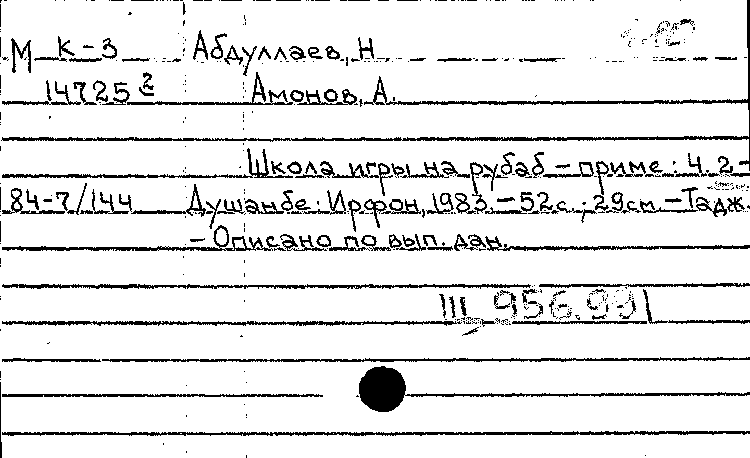 М К-3 Абдуллаев, Н
14725² Амонов, А.
Школа игры на рубаб - приме: Ч. 2.-
84-7/144 Душанбе: Ирфон, 1983. - 52с.; 29см. - Тадж.
- Описано по вып. дан.
Щ 956.991